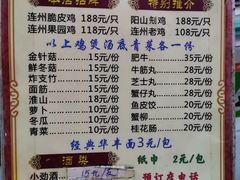 本店招牌
特别推介
连州脆皮鸡 188元/只
阳山刹鸡 188元/只
连州果园鸡 118元/只
连州老鸡 108元/只
以上鸡煲汤底青菜各一份
金针菇 15元/份
肥牛 35元/份
鲜冬菇 15元/份
牛筋丸 28元/份
炸支竹 15元/份
牛肉丸 28元/份
面筋 15元/份
芝心丸 28元/份
淮山 15元/份
蟹仔丸 28元/份
萝卜 10元/份
鱼皮饺 20元/份
冬瓜 10元/份
蟹柳 20元/份
青菜 10元/份
桂花肠 20元/份
经典华丰面3元/包
酒类
纸巾 2元/包
小劲酒
15元/支
预订座电话